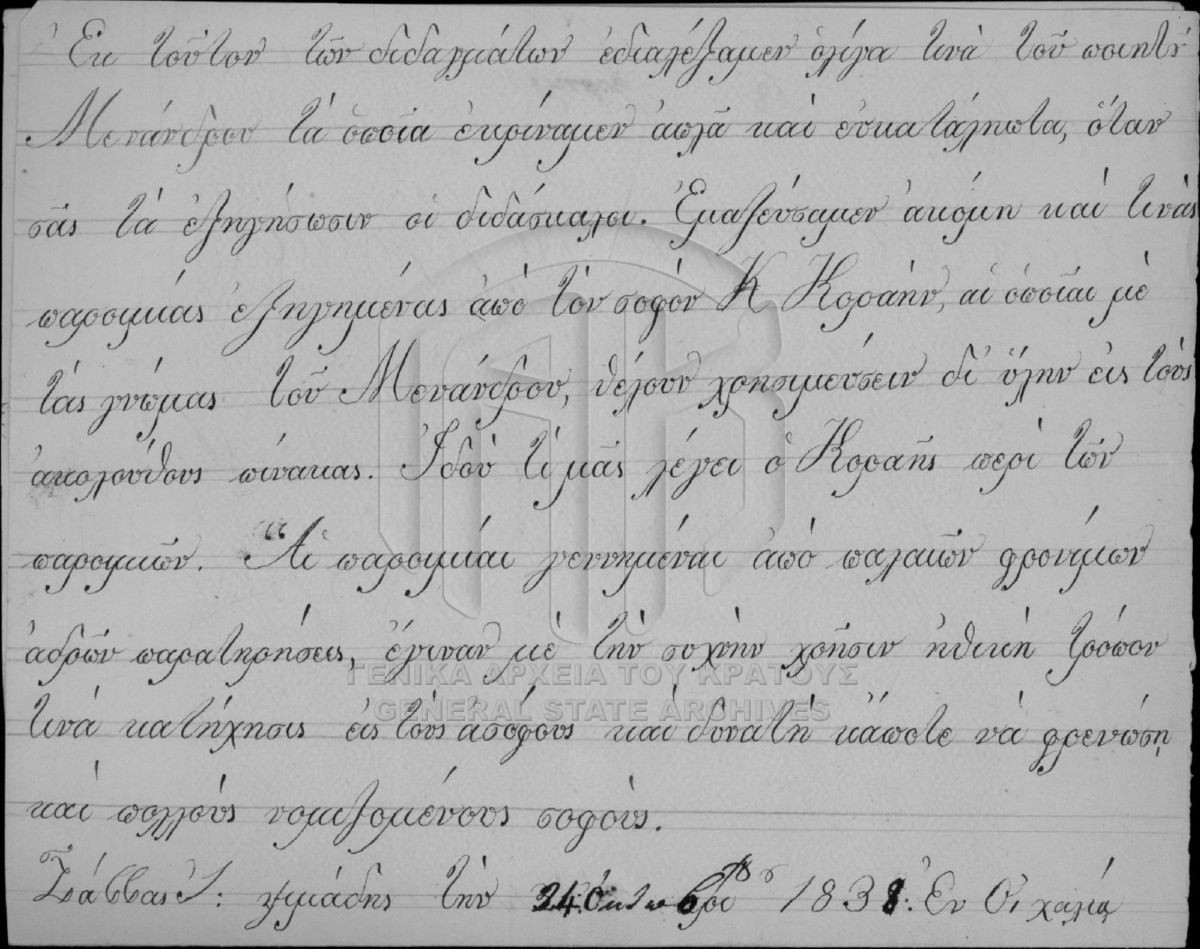 Ἐκ τούτου τῶν διδαγμάτων ἐδιαλέξαμεν ὀλίγα τινὰ τοῦ ποιητοῦ
Μενάνδρου τὰ ὁποῖα ἐκρίναμεν ἁπλᾶ καὶ εὐκατάληπτα, ὅταν
σᾶς τὰ ἐξηγήσωσιν οἱ διδάσκαλοι. Ἐμαζεύσαμεν ἀκόμη καὶ τινὰς
παροιμίας ἐξηγημένας ἀπὸ τὸν σοφὸν Κ Κοραὴν, αἱ ὁποῖαι μὲ
τὰς γνώμας τοῦ Μενάνδρου, θέλουν χρησιμεύσειν δι' ὕλην εἰς τοὺς
ἀκολούθους πίνακας. Ἰδοὺ τὶ μᾶς λέγει ὁ Κοραῆς περὶ τῶν
παροιμιῶν. "Αἱ παροιμίαι γεννημέναι ἀπὸ παλαιῶν φρονίμων
ἀδρῶν παρατηρήσεις, ἔγιναν μὲ τὴν συχνὴν χρῆσιν ἠθικὴ τρόπον
τινὰ κατήχησις εἰς τοὺς ἀσόφους καὶ δυνατὴ κάποτε νὰ φρενώσῃ
καὶ πολλοὺς νομιζομένους σοφούς.
Σάββας τὴν 24 Ὀκτωβρίου 1838. Ἐν
ΓΕΝΙΚΑ ΑΡΧΕΙΑ ΤΟΥ ΚΡΑΤΟΥΣ
GENERAL STATE ARCHIVES